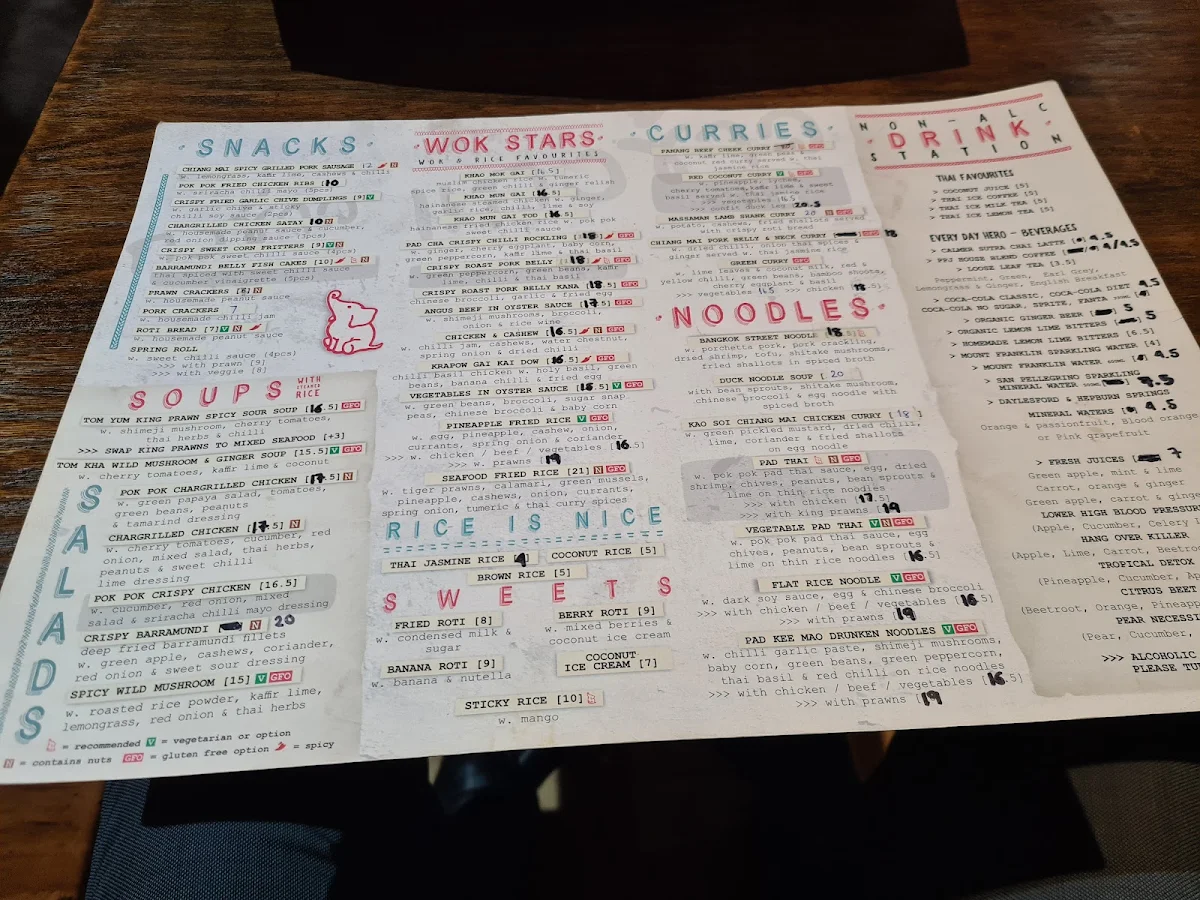 SNACKS
CHIANG MAI SPICY GRILLED PORK SAUSAGE 12 N
w. lemongrass, kaffir lime, cashews & chilli
POK POK FRIED CHICKEN RIBS 10
w. sriracha chilli mayo (5pcs)
CRISPY FRIED GARLIC CHIVE DUMPLINGS [9] V
w. garlic chive & sticky
chilli soy sauce (2pcs)
CHARGRILLED CHICKEN SATAY 10 N
w. housemade peanut sauce & cucumber,
red onion dipping sauce (3pcs)
CRISPY SWEET CORN FRITTERS [9] V N
w. pok pok sweet chilli sauce (4pcs)
BARRAMUNDI BELLY FISH CAKES [10] N
thai spiced with sweet chilli sauce
& cucumber vinaigrette (5pcs)
PRAWN CRACKERS [6] N
w. housemade peanut sauce
PORK CRACKERS 7
w. housemade chilli jam
ROTI BREAD [7] V N
w. housemade peanut sauce
SPRING ROLL
w. sweet chilli sauce (4pcs)
>>> with prawn [9]
>>> with veggie [8]
SOUPS WITH STEAMED RICE
TOM YUM KING PRAWN SPICY SOUR SOUP [16.5] GFO
w. shimeji mushroom, cherry tomatoes,
thai herbs & chilli
>>> SWAP KING PRAWNS TO MIXED SEAFOOD [+3]
TOM KHA WILD MUSHROOM & GINGER SOUP [15.5] V GFO
w. cherry tomatoes, kaffir lime & coconut
SALADS
POK POK CHARGRILLED CHICKEN [17.5] N
w. green papaya salad, tomatoes,
green beans, peanuts
& tamarind dressing
CHARGRILLED CHICKEN [17.5] N
w. cherry tomatoes, cucumber, red
onion, mixed salad, thai herbs,
peanuts & sweet chilli
lime dressing
POK POK CRISPY CHICKEN [16.5]
w. cucumber, red onion, mixed
salad & sriracha chilli mayo dressing
CRISPY BARRAMUNDI N 20
deep fried barramundi fillets
w. green apple, cashews, coriander,
red onion & sweet sour dressing
SPICY WILD MUSHROOM [15] V GFO
w. roasted rice powder, kaffir lime,
lemongrass, red onion & thai herbs
= recommended V = vegetarian or option
N = contains nuts GFO = gluten free option = spicy
WOK STARS
WOK & RICE FAVOURITES
KHAO MOK GAI [16.5]
muslim chicken rice w. tumeric
spice rice, green chilli & ginger relish
KHAO MUN GAI [16.5]
hainanese steamed chicken w. ginger,
garlic rice, chilli, lime & soy
KHAO MUN GAI TOD [16.5]
hainanese fried chicken rice w. pok pok
sweet chilli sauce
PAD CHA CRISPY CHILLI ROCKLING GFO
w. ginger, cherry eggplant, baby corn,
green peppercorn, kaffir lime & thai basil
CRISPY ROAST PORK BELLY [18.5] GFO
w. green peppercorn, green beans, kaffir
lime, chilli & thai basil
CRISPY ROAST PORK BELLY KANA [18.5] GFO
chinese broccoli, garlic & fried egg
ANGUS BEEF IN OYSTER SAUCE [17.5] GFO
w. shimeji mushrooms, broccoli,
onion & rice wine
CHICKEN & CASHEW [16.5] N GFO
w. chilli jam, cashews, water chestnut,
spring onion & dried chilli
KRAPOW GAI KAI DOW [16.5] GFO
chilli basil chicken w. holy basil, green
beans, banana chilli & fried egg
VEGETABLES IN OYSTER SAUCE [15.5] V GFO
w. green beans, broccoli, sugar snap
peas, chinese broccoli & baby corn
PINEAPPLE FRIED RICE V N GFO
w. egg, pineapple, cashew, onion,
currants, spring onion & coriander
>>> w. chicken / beef / vegetables [16.5]
>>> w. prawns [19
SEAFOOD FRIED RICE [21] N GFO
w. tiger prawns, calamari, green mussels,
pineapple, cashews, onion, currants,
spring onion, tumeric & thai curry spices
RICE IS NICE
THAI JASMINE RICE 4
COCONUT RICE [5]
BROWN RICE [5]
SWEETS
FRIED ROTI [8]
w. condensed milk &
sugar
BERRY ROTI [9]
w. mixed berries &
coconut ice cream
BANANA ROTI [9]
w. banana & nutella
COCONUT
ICE CREAM [7]
STICKY RICE [10]
w. mango
CURRIES
PANANG BEEF CHEEK CURRY GFO
w. kaffir lime, green peas &
coconut red curry served w. thai
jasmine rice
RED COCONUT CURRY V GFO
w. pineapple, lychee,
cherry tomatoes, kaffir lime & sweet
basil served w. thai jasmine rice
>>> vegetables 16.5
>>> confit duck leg 20.5
MASSAMAN LAMB SHANK CURRY 20 N GFO
w. potato, cashews, fried shallots served
with crispy roti bread
CHIANG MAI PORK BELLY & NECK CURRY GFO 18
w. dried chilli, onion thai spices &
ginger served w. thai jasmine rice
GREEN CURRY GFO
w. lime leaves & coconut milk, red &
yellow chilli, green beans, bamboo shoots,
cherry eggplant & basil
>>> vegetables 16.5 >>> chicken [18.5]
NOODLES
BANGKOK STREET NOODLE [18.5]
w. porchetta pork, pork crackling,
dried shrimp, tofu, shitake mushrooms,
fried shallots in spiced broth
DUCK NOODLE SOUP [ 20
with bean sprouts, shitake mushroom,
chinese broccoli & egg noodle with
spiced broth
KAO SOI CHIANG MAI CHICKEN CURRY [ 18 ]
w. green pickled mustard, dried chilli,
lime, coriander & fried shallots
on egg noodle
PAD THAI N GFO
w. pok pok pad thai sauce, egg, dried
shrimp, chives, peanuts, bean sprouts &
lime on thin rice noodles
>>> with chicken [17.5]
>>> with king prawns [19
VEGETABLE PAD THAI V N GFO
w. pok pok pad thai sauce, egg,
chives, peanuts, bean sprouts &
lime on thin rice noodles [16.5]
FLAT RICE NOODLE V GFO
w. dark soy sauce, egg & chinese broccoli
>>> with chicken / beef / vegetables [16.5]
>>> with prawns [19
PAD KEE MAO DRUNKEN NOODLES V GFO
w. chilli garlic paste, shimeji mushrooms,
baby corn, green beans, green peppercorn,
thai basil & red chilli on rice noodles
>>> with chicken / beef / vegetables [16.5]
>>> with prawns [19
NON-ALC
DRINK
STATION
THAI FAVOURITES
> COCONUT JUICE [5]
> THAI ICE COFFEE [5]
> THAI ICE MILK TEA [5]
> THAI ICE LEMON TEA [5]
EVERY DAY HERO - BEVERAGES
> CALMER SUTRA CHAI LATTE 4.5
> PPJ HOUSE BLEND COFFEE 4/4.5
> LOOSE LEAF TEA [3.5]
Peppermint, Green, Earl Grey,
Lemongrass & Ginger, English Breakfast
> COCA-COLA CLASSIC, COCA-COLA DIET 4.5
COCA-COLA NO SUGAR, SPRITE, FANTA
> ORGANIC GINGER BEER 5
> ORGANIC LEMON LIME BITTERS 5
> HOMEMADE LEMON LIME BITTERS [6.5]
> MOUNT FRANKLIN SPARKLING WATER [4]
> MOUNT FRANKLIN WATER 4.5
> SAN PELLEGRINO SPARKLING
MINERAL WATER 9.5
> DAYLESFORD & HEPBURN SPRINGS
MINERAL WATERS 4.5
Orange & passionfruit, Blood orange
or Pink grapefruit
> FRESH JUICES 7
Green apple, mint & lime
Carrot, orange & ginger
Green apple, carrot & ginger
LOWER HIGH BLOOD PRESSURE
(Apple, Cucumber, Celery
HANG OVER KILLER
(Apple, Lime, Carrot, Beetroot
TROPICAL DETOX
(Pineapple, Cucumber,
CITRUS BEET
(Beetroot, Orange, Pineapple
PEAR NECESSI
(Pear, Cucumber,
>>> ALCOHOLIC
PLEASE TU